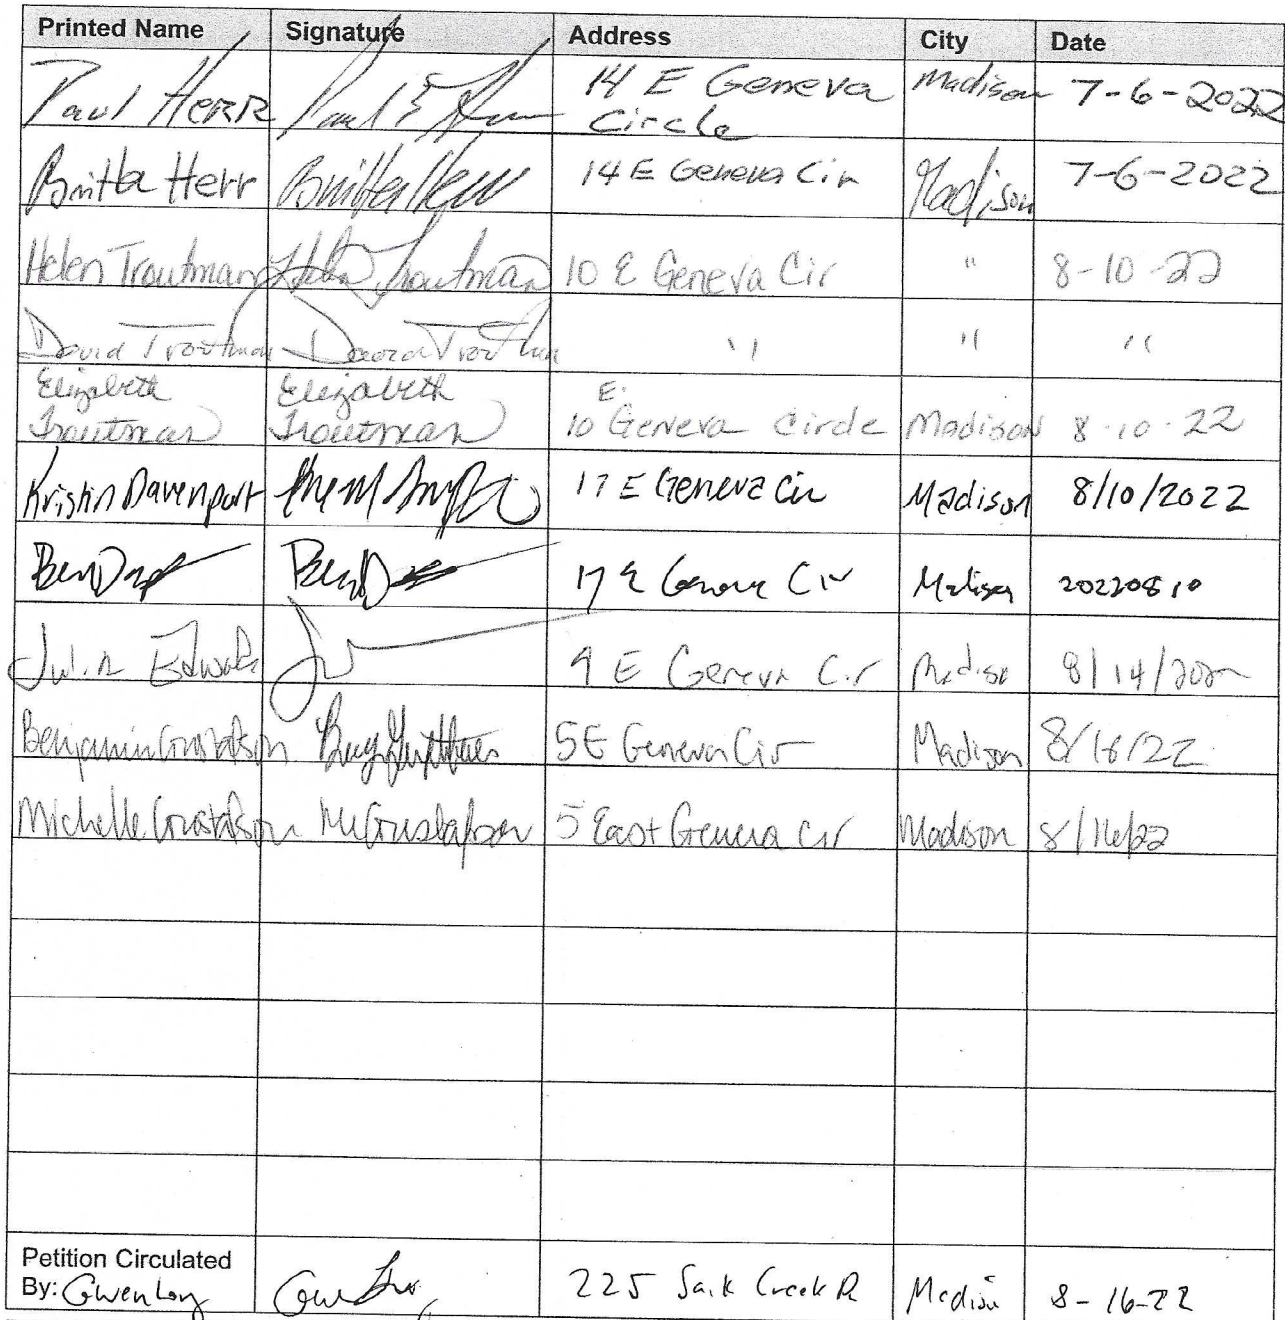 Printed Name Signature Address City Date
Paul Herr Paul E Herr 14 E Geneva Circle Madison 7-6-2022
Britta Herr Britta Herr 14 E Geneva Cir Madison 7-6-2022
Helen Troutman Helen Troutman 10 E Geneva Cir " 8-10-22
David Troutman David Troutman " " "
Elizabeth Troutman Elizabeth Troutman 10 E. Geneva Circle Madison 8-10-22
Kristin Davenport 17 E Geneva Cir Madison 8/10/2022
Ben 17 E Geneva Cir Madison 20220810
Julia Edwards 9 E Geneva Cir Madison 8/14/2022
Benjamin Gustafson 5 E Geneva Cir Madison 8/16/22
Michelle Gustafson M Gustafson 5 East Geneva Cir Madison 8/16/22
Petition Circulated
By: Gwen Long 225 Sauk Creek Dr Madison 8-16-22